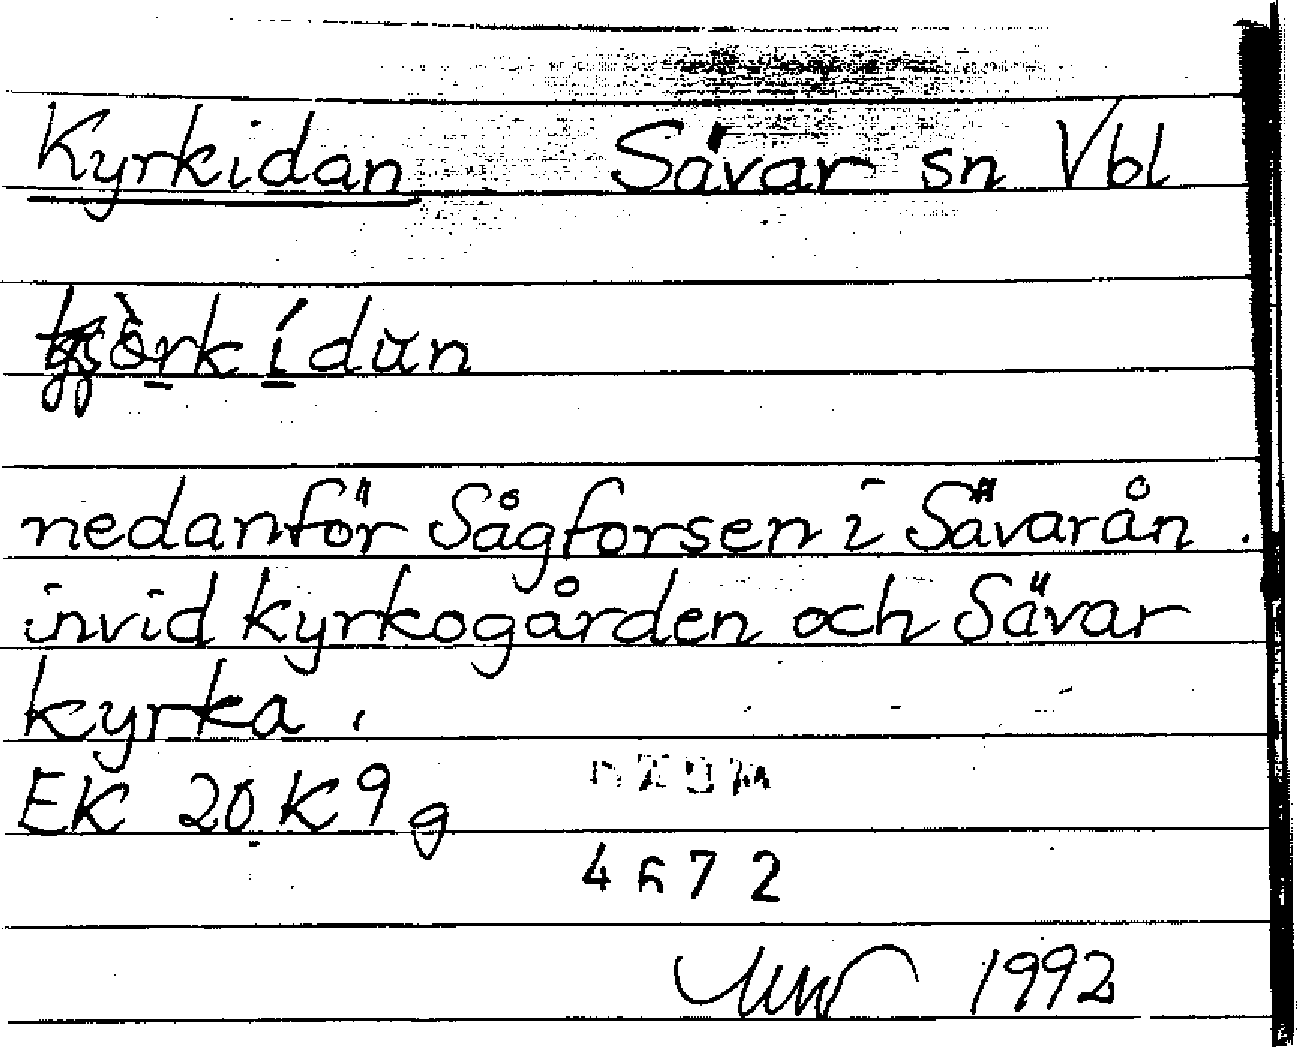 Kyrkidan Sävar sn Vbl
nedanför Sågforsen i Sävarån
invid kyrkogården och Sävar
kyrka.
EK 20 K 9 g
4672
1992